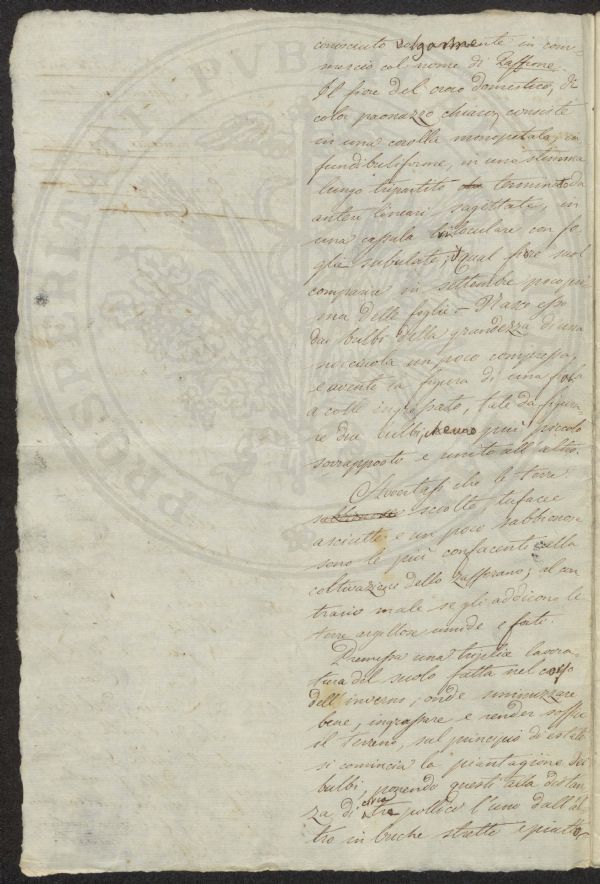 conosciuto volgarmente in com-
mercio col nome di Zaffrone.
Il fiore del croco domestico, di
color paonazzo chiaro, consiste
in una corolla monopetala, in
fundibuliforme, in uno stimma
lungo tripartito terminato da
antere lineari sagittate, in
una capsula triloculare con fo-
glie subulate; il qual fiore suol
comparire in settembre poco pri
ma delle foglie. Nasce esso
dai bulbi della grandezza di una
nocciuola un poco compressa,
e aventi la figura di una
a colte ingrossate, tale da figura
re due bulbi, uno più piccolo
sovrapposto e unito all'altro.
Avvertasi che le terre
sciolte tufacee
asciutte e un poco sabbionose
sono le più confacenti alla
coltivazione dello zafferano; al con
trario male se gli addicono le
terre argillose umide e forti.
Premessa una triplice lavora-
tura del suolo fatta nel corso
dell'inverno, onde sminuzzare
bene, ingrassare e render soffice
il terreno, sul principio di estate
si comincia la piantagione dei
bulbi, ponendo questi alla distan
za di circa tre pollici l'uno dall'al
tro in buche strette e piutto
PROSPERITATI PUB